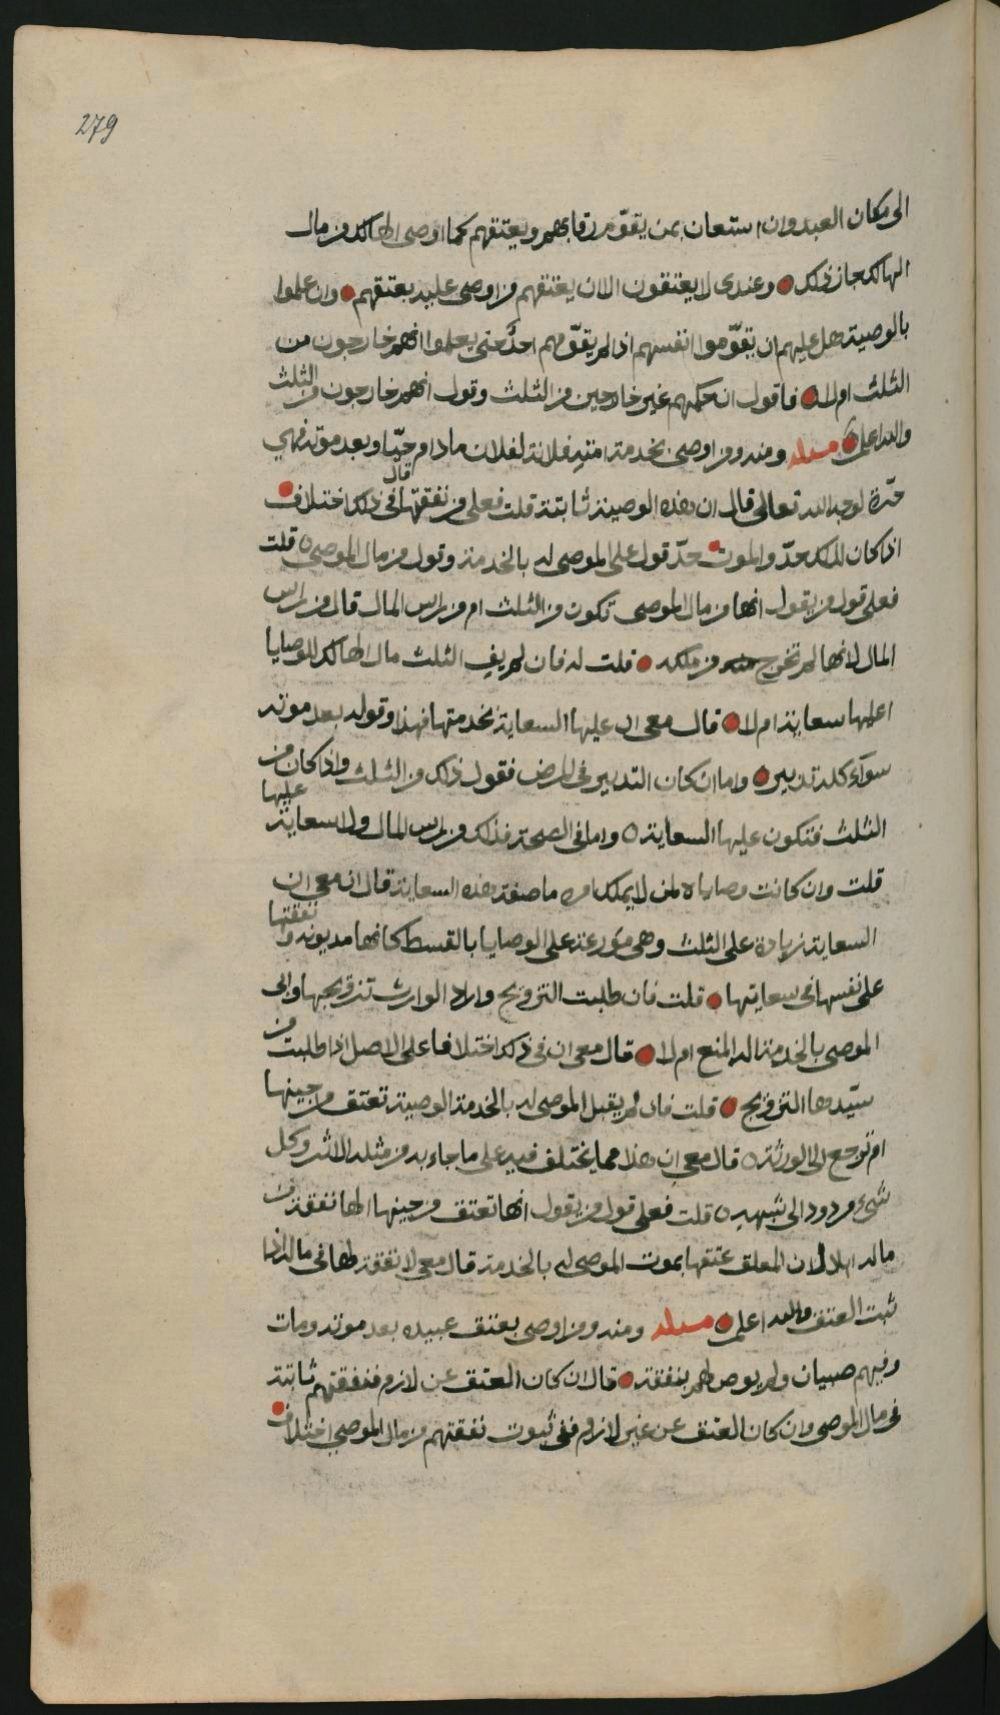 279
الى مكان العبد وان استعان بمن يقوّم رقابهم ويعتقهم كما اوصى الهالك من مال
الهالك جاز ذلك وعندى لا يعتقون الا ان يعتقهم من اوصى عليه بعتقهم وان علموا
بالوصية هل عليهم ان يقوّموا انفسهم اذا لم يقوّمهم احدٌ حتى يعلموا انهم خارجون من
الثلث ام لا فاقول ان حكمهم غير خارجين من الثلث وقول انهم خارجون من الثلث
والله اعلم مسئلة ومنه ومن اوصى بخدمة امته فلانة لفلان ما دام حيّا وبعد موته فهي
حرّة لوجه الله تعالى قال ان هذه الوصية ثابتة قلت فعلى من نفقتها قال فى ذلك اختلاف
اذا كان لذلك حدّ والموت حدّ قول على الموصى له بالخدمة وقول من مال الموصى قلت
فعلى قول من يقول انها من مال الموصى تكون من الثلث ام من راس المال قال من راس
المال لانها لم تخرج من ملكه قلت له فان لم يف الثلث مال الهالك للوصايا
اعليها سعاية ام لا قال معى ان عليها السعاية بخدمتها فهذا وقوله بعد موته
سوآء كله تدبير واما ان كان التدبير فى المرض فقول ذلك من الثلث واذا كان من
الثلث فتكون عليها السعاية واما فى الصحة فذلك من راس المال ولا سعاية عليها
قلت وان كانت وصاياه لمن لا يملك امره ما صفة هذه السعاية قال ان معى ان
السعاية زيادة على الثلث وهى موزعة على الوصايا بالقسط كانها مديونة ونفقتها
على نفسها فى سعايتها قلت فان طلبت التزويج واراد الوارث تزويجها وابى
الموصى بالخدمة اله المنع ام لا قال معى ان فى ذلك اختلافا على الاصل اذا طلبت من
سيّدها التزويج قلت فان لم يقبل الموصى له بالخدمة الوصية تعتق من حينها
ام ترجع الى الورثة قال معى ان هذا مما يختلف فيه على ما جاء به من مثله الاثر وكل
شىء مردود الى شبهه قلت فعلى قول من يقول انها تعتق من حينها الها نفقة من
ماله ام لا لان المعلق عتقها بموت الموصى له بالخدمة قال معى لا نفقة لها فى ماله اذا
ثبت العتق والله اعلم مسئلة ومنه ومن اوصى بعتق عبيده بعد موته ومات
وفيهم صبيان ولم يوص لهم بنفقة قال ان كان العتق عن لازم فنفقتهم ثابتة
فى مال الموصى وان كان العتق عن غير لازم ففى ثبوت نفقتهم من مال الموصي اختلاف